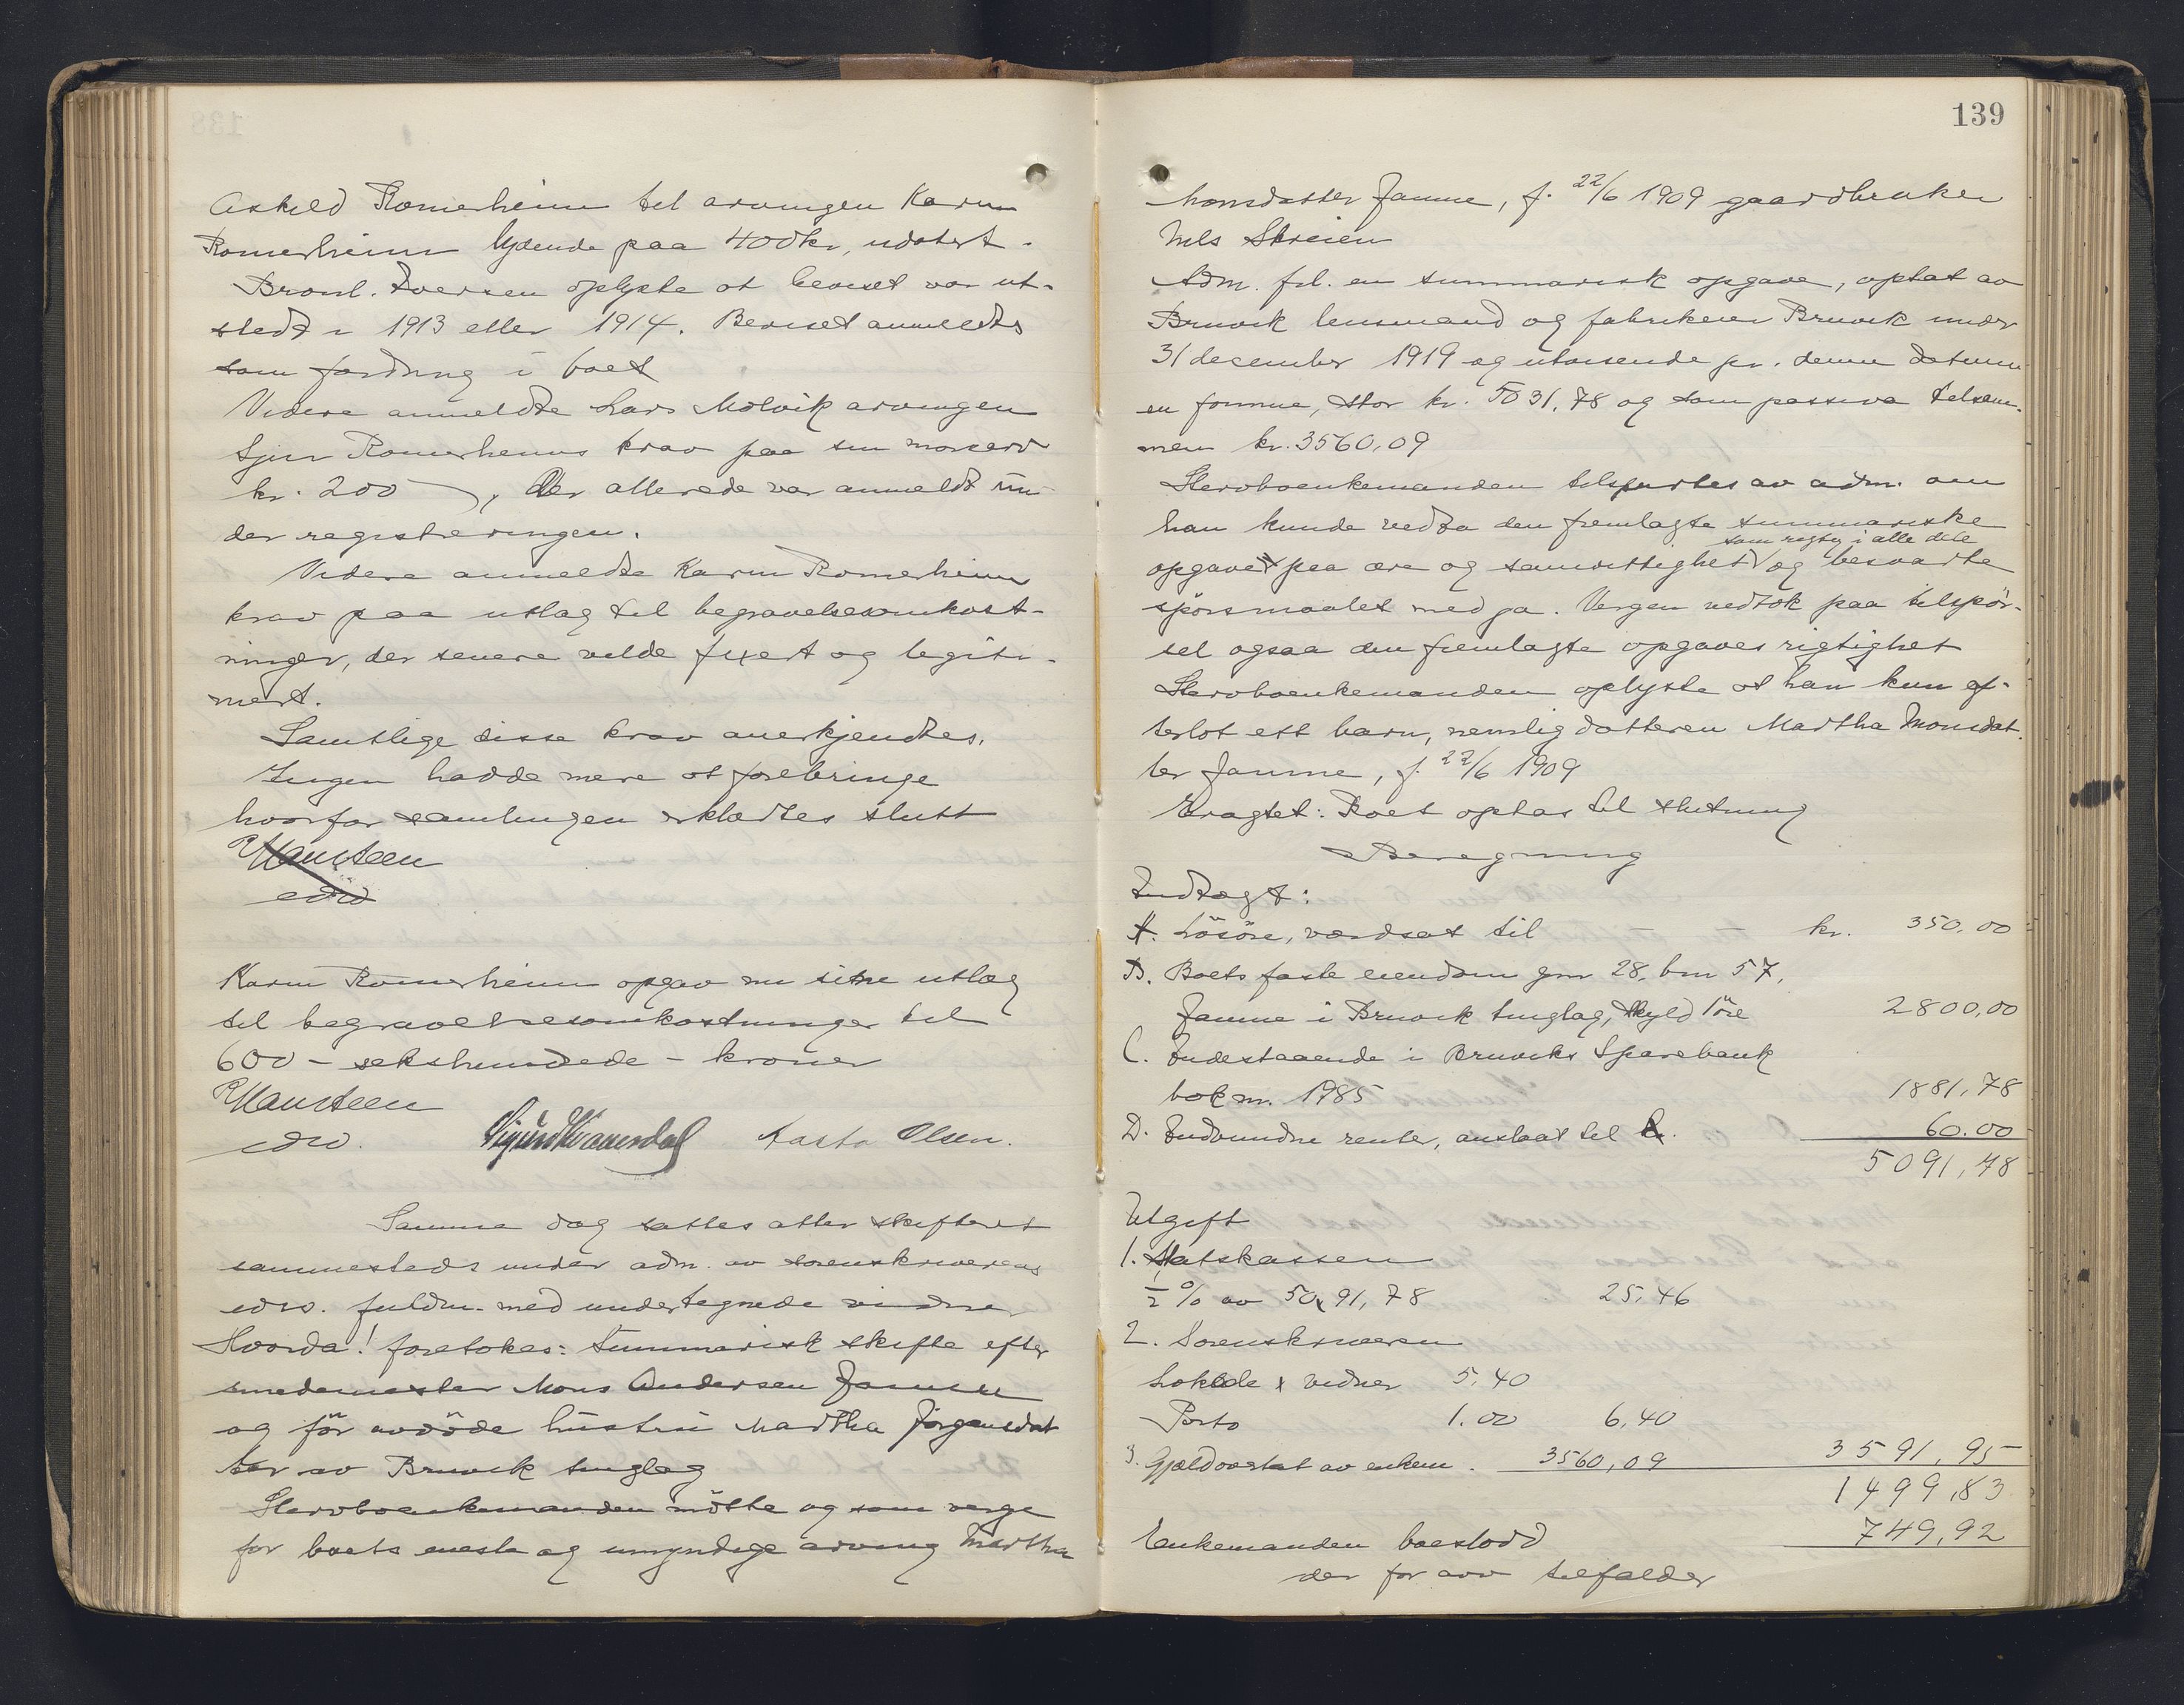 Askild Romerheim til arvingen Karen
Romerheim lydende paa 400 kr, udatert.
Iversen oplyste at beviset var ut-
stedt i 1913 eller 1914. Beviset anmeldtes
som fordring i boet
Videre anmeldte Lars Molvik arvingen
Romerheims krav paa sin morsarv
kr. 200, der allerede var anmeldt un-
der registreringen.
Videre anmeldte Karen Romerheim
krav paa utlæg til begravelsesomkost-
ninger, der senere vilde fixert og legiti-
mert.
Samtlige disse krav anerkjendtes.
Ingen hadde mere at frebringe
hvorfor samlingen erklærtes slutt
Hansteen
edsv
Karen Romerheim opgav nu sine utlæg
til begravelsesomkostninger til
600 - sekshundrede - kroner
Hansteen
edsv. Aasta Olsen.
Samme dag sattes atter skifteret
sammesteds under adm. av sorenskriverens
edsv. fuldm. med undertegnede vidner
Hvorda! foretokes: Summarisk skifte efter
smedemester Mons Andersen Jamne
og før avdöde hustru Martha Jörgensdat
ter av Bruvik tinglag
Stervboenkemanden mötte og som verge
for boets eneste og umyndige arving Martha
139
Monsdatter Jamne, f. 22/6 1909 gaardbruker
Nils Skreien
Adm. frl. en summarisk opgave, optat av
Bruvik lensmand og fabrikeier Bruvik under
31 december 1919 og utvisende pr. denne datum
en formue, stor kr. 5031,78 og som passiva tilsam-
men kr. 3560,09
Stervboenkemanden tilspurtes av adm. om
han kunde vedta den fremlagte summariske
som rigtig i alle dele
opgave paa ære og samvittighet og besvarte
spörsmaalet med ja. Vergen vedtok paa tilspör-
sel ogsaa den fremlagte opgaves rigtighet
Stervboenkemanden oplyste at han kun ef-
terlot ett barn, nemlig datteren Martha Monsdat-
ter Jamne, f. 22/6 1909
Eragtet: Boet optas til slutning
Beregning
Indtægt:
A. Lösöre, værdsat til kr. 350,00
B. Boets faste eiendom gnr 28, bnr 57,
Jamne i Bruvik tinglag, skyld 1 öre 2800,00
C. Indestaaende i Bruviks Sparebank
bok nr. 1985 1881,78
D. Indvundne renter, anslaat til 60.00
5091,78
Utgift
1. Statskassen
1/2 % av 5091,78 25,46
2. Sorenskriveren
Lokale & vidner 5,40
Porto 1.00 6,40
3. Gjæld av enkem. 3560,09 3591,95
1499,83
Enkemanden boeslodd 749,92
der for arv tilfalder